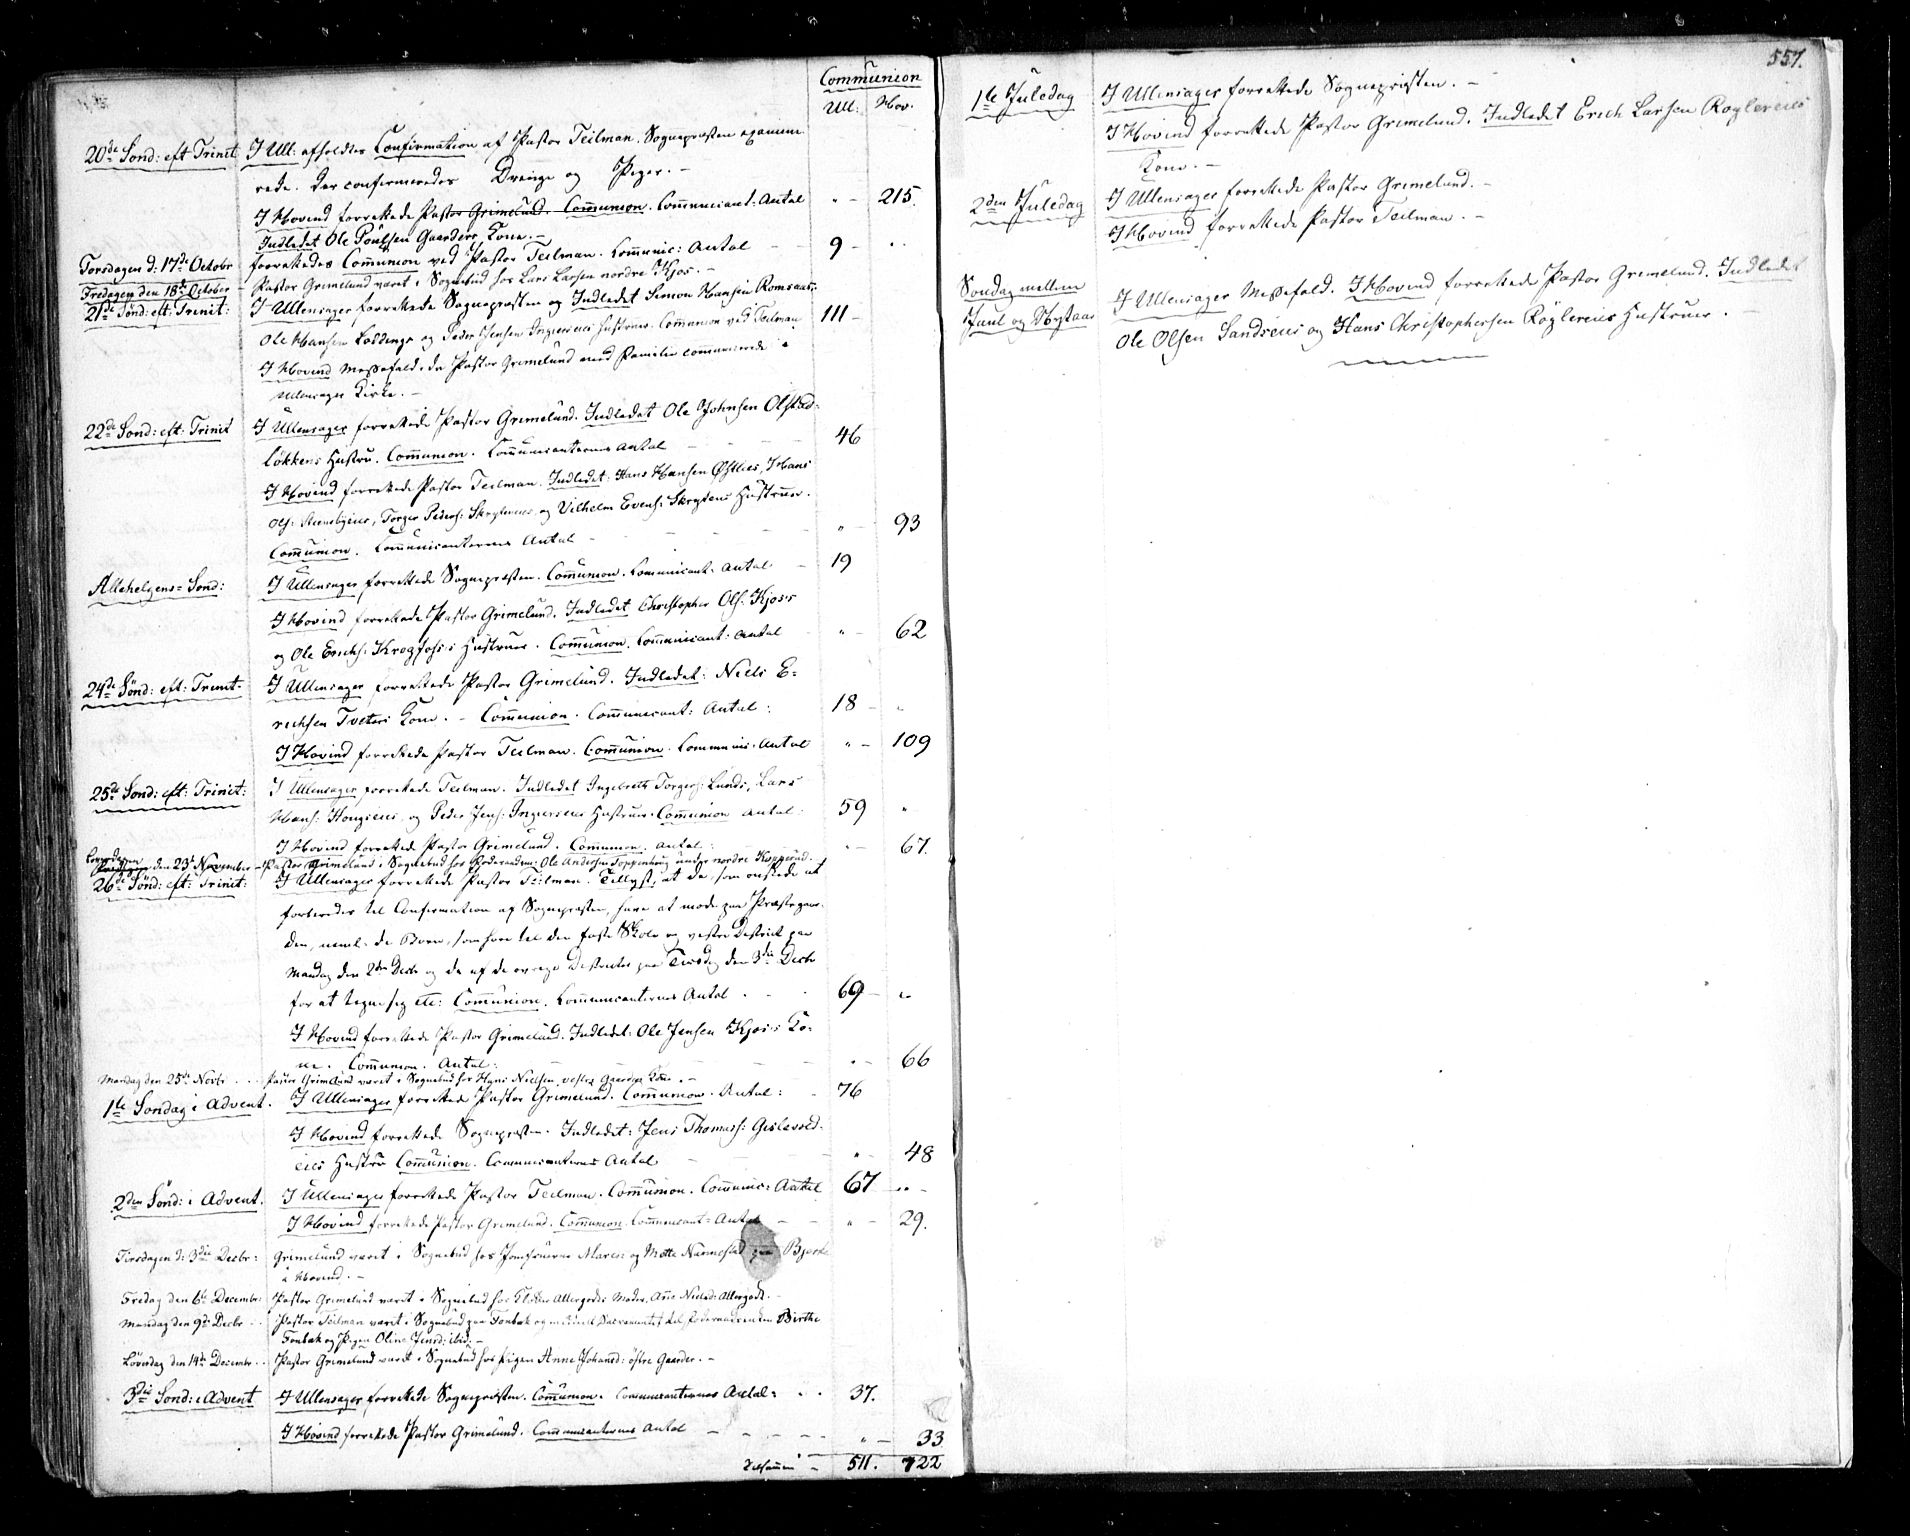 Communion
Ull: Hov.
20de Sønd: eft Trinit I Ull: afholdtes Confirmation af Pastor Teilman. Sognepræsten examine
rede. Der confirmeredes Drenge og Piger. -
I Hovind forrettede Pastor Grimelund. Communion. Communicant: Antal " - 215.
Indledet Ole Poulsen Gaarders Kone. -
Torsdagen d: 17de Octobr forrettedes Communion ved Pastor Teilman. Communic: Antal - 9 -
Fredagen den 18de October - Pastor Grimelund været i Sognebud hos Lars Larsen nordre Kjos. -
21de Sønd: eft: Trinit: I Ullensager forrettede Sognepræsten og Indledet Simon Hansen Romsaas,
Ole Hansen og Peder Jensen Ingierseies Hustruer. Communion ved Teilman 111 -
I Hovind Messefald, da Pastor Grimelund med Familie communicerede i
Ullensager Kirke. -
22de Sønd: eft: Trinit I Ullensager forrettede Pastor Grimelund. Indledet Ole Johnsen Olstad-
løkkens Hustru. Communion. Communicanternes Antal - 46
I Hovind forrettede Pastor Teilman. Indledet: Hans Hansen Østlies, Hans
Ols: Steensbyeies, Torger Peders: Skrytteries, og Vilhelm Evens: Skrytteries Hustruer.
Communion. Communicanternes Antal - " - 93
Allehelgens=Sønd: I Ullensager forrettede Sognepræsten. Communion. Communicant: Antal - 19
I Hovind forrettede Pastor Grimelund. Indledet Christopher Ols: Kjos's
og Ole Erichs: Krogfos's Hustruer. Communion. Communicant: Antal " - 62
24de Sønd: eft: Trinit: I Ullensager forrettede Pastor Grimelund. Indledet: Niels E-
richsen Tveters Kone. - Communion. Communicant: Antal: 18 - "
I Hovind forrettede Pastor Teilman. Communion. Communic: Antal " - 109
25de Sønd: eft: Trinit: I Ullensager forrettede Teilman. Indledet Ingebreth Torgers: Lunds, Lars
Hans: Haugseies og Peder Jens: Ingierseies Hustruer. Communion Antal: 59 "
I Hovind forrettede Pastor Grimelund. Communion. Antal: " - 67.
Løverdagen den 23de November - Pastor Grimelund i Sognebud hos Føderaadsm: Ole Andersen Toppenhoug under nordre Kopperud.
26de Sønd: eft: Trinit: I Ullensager forrettede Pastor Teilman. Tillyst, at de som ønskede at
forberedes til Confirmation af Sognepræsten, have at møde paa Præstegaar-
den, neml: de Børn, som høre til den faste Skole og vestre District paa
Mandag den 2den Decbr og de af de øvrige Districter paa Tirsdag den 3die Decbr
for at tegne sig etc: Communion. Communicanternes Antal - 69 - "
I Hovind forrettede Pastor Grimelund. Indledet: Ole Jensen Kjos's Ko-
ne. Communion. Antal: " - 66
Mandag den 25de Novbr ... Pastor Grimelund været i Sognebud hos Hans Nielsen, vestre Gaarder Kone. -
1te Søndag i Advent. I Ullensager forrettede Pastor Grimelund. Communion. Antal: - 76
I Hovind forrettede Sognepræsten. Indledet: Jens Thomass: Gislevold-
eies Hustru Communion. Communicanternes Antal " - 48
2den Sønd: i Advent. I Ullensager forrettede Pastor Teilman. Communion. Communic: Antal 67 - " -
I Hovind forrettede Pastor Grimelund. Communion. Communicant= Antal - " - 29.
Tirsdagen d: 3die Decbr: Grimelund været i Sognebud hos Jomfruerne Maren og Mette Nannestad paa Bjerke
i Hovind. -
Fredag den 6te Decembr: Pastor Grimelund været i Sognebud hos Allergodts Moder, Anne Nielsd: Allergodt. -
Mandag den 9de Decbr .. Pastor Teilman været i Sognebud paa Fonbæk og Sacramentet til Føderaadsenken Birthe
Fonbæk og Pigen Oline Jensd: ibid: -
Løverdag den 14de Decembr .. Pastor Grimelund været i Sognebud hos Pigen Anne Johansd: østre Gaarder. -
3die Sønd: i Advent I Ullensager forrettede Sognepræsten. Communion. Communicanternes Antal: . . 37.
I Hovind forrettede Pastor Grimelund. Communicanternes Antal - - - - " - 33
Tilsammen - 511. 722
557.
1te Juledag I Ullensager forrettede Sognepræsten. -
I Hovind forrettede Pastor Grimelund. Indledet Erich Larsen Røglereies
Kone. -
2den Juledag I Ullensager forrettede Pastor Grimelund. -
I Hovind forrettede Pastor Teilman. -
Søndag mellem I Ullensager Messefald. I Hovind forrettede Pastor Grimelund. Indledet
Juul og Nytaar Ole Olsen Sandseies og Hans Christophersen Røglereies Hustruer. -